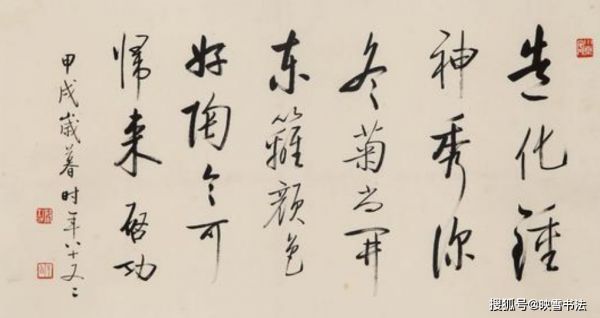 造化鍾
神秀深
冬菊尚開
东籬颜色
好陶令可
归来啟功
甲戌歲暮时年八十又二
搜狐号@映雪书法